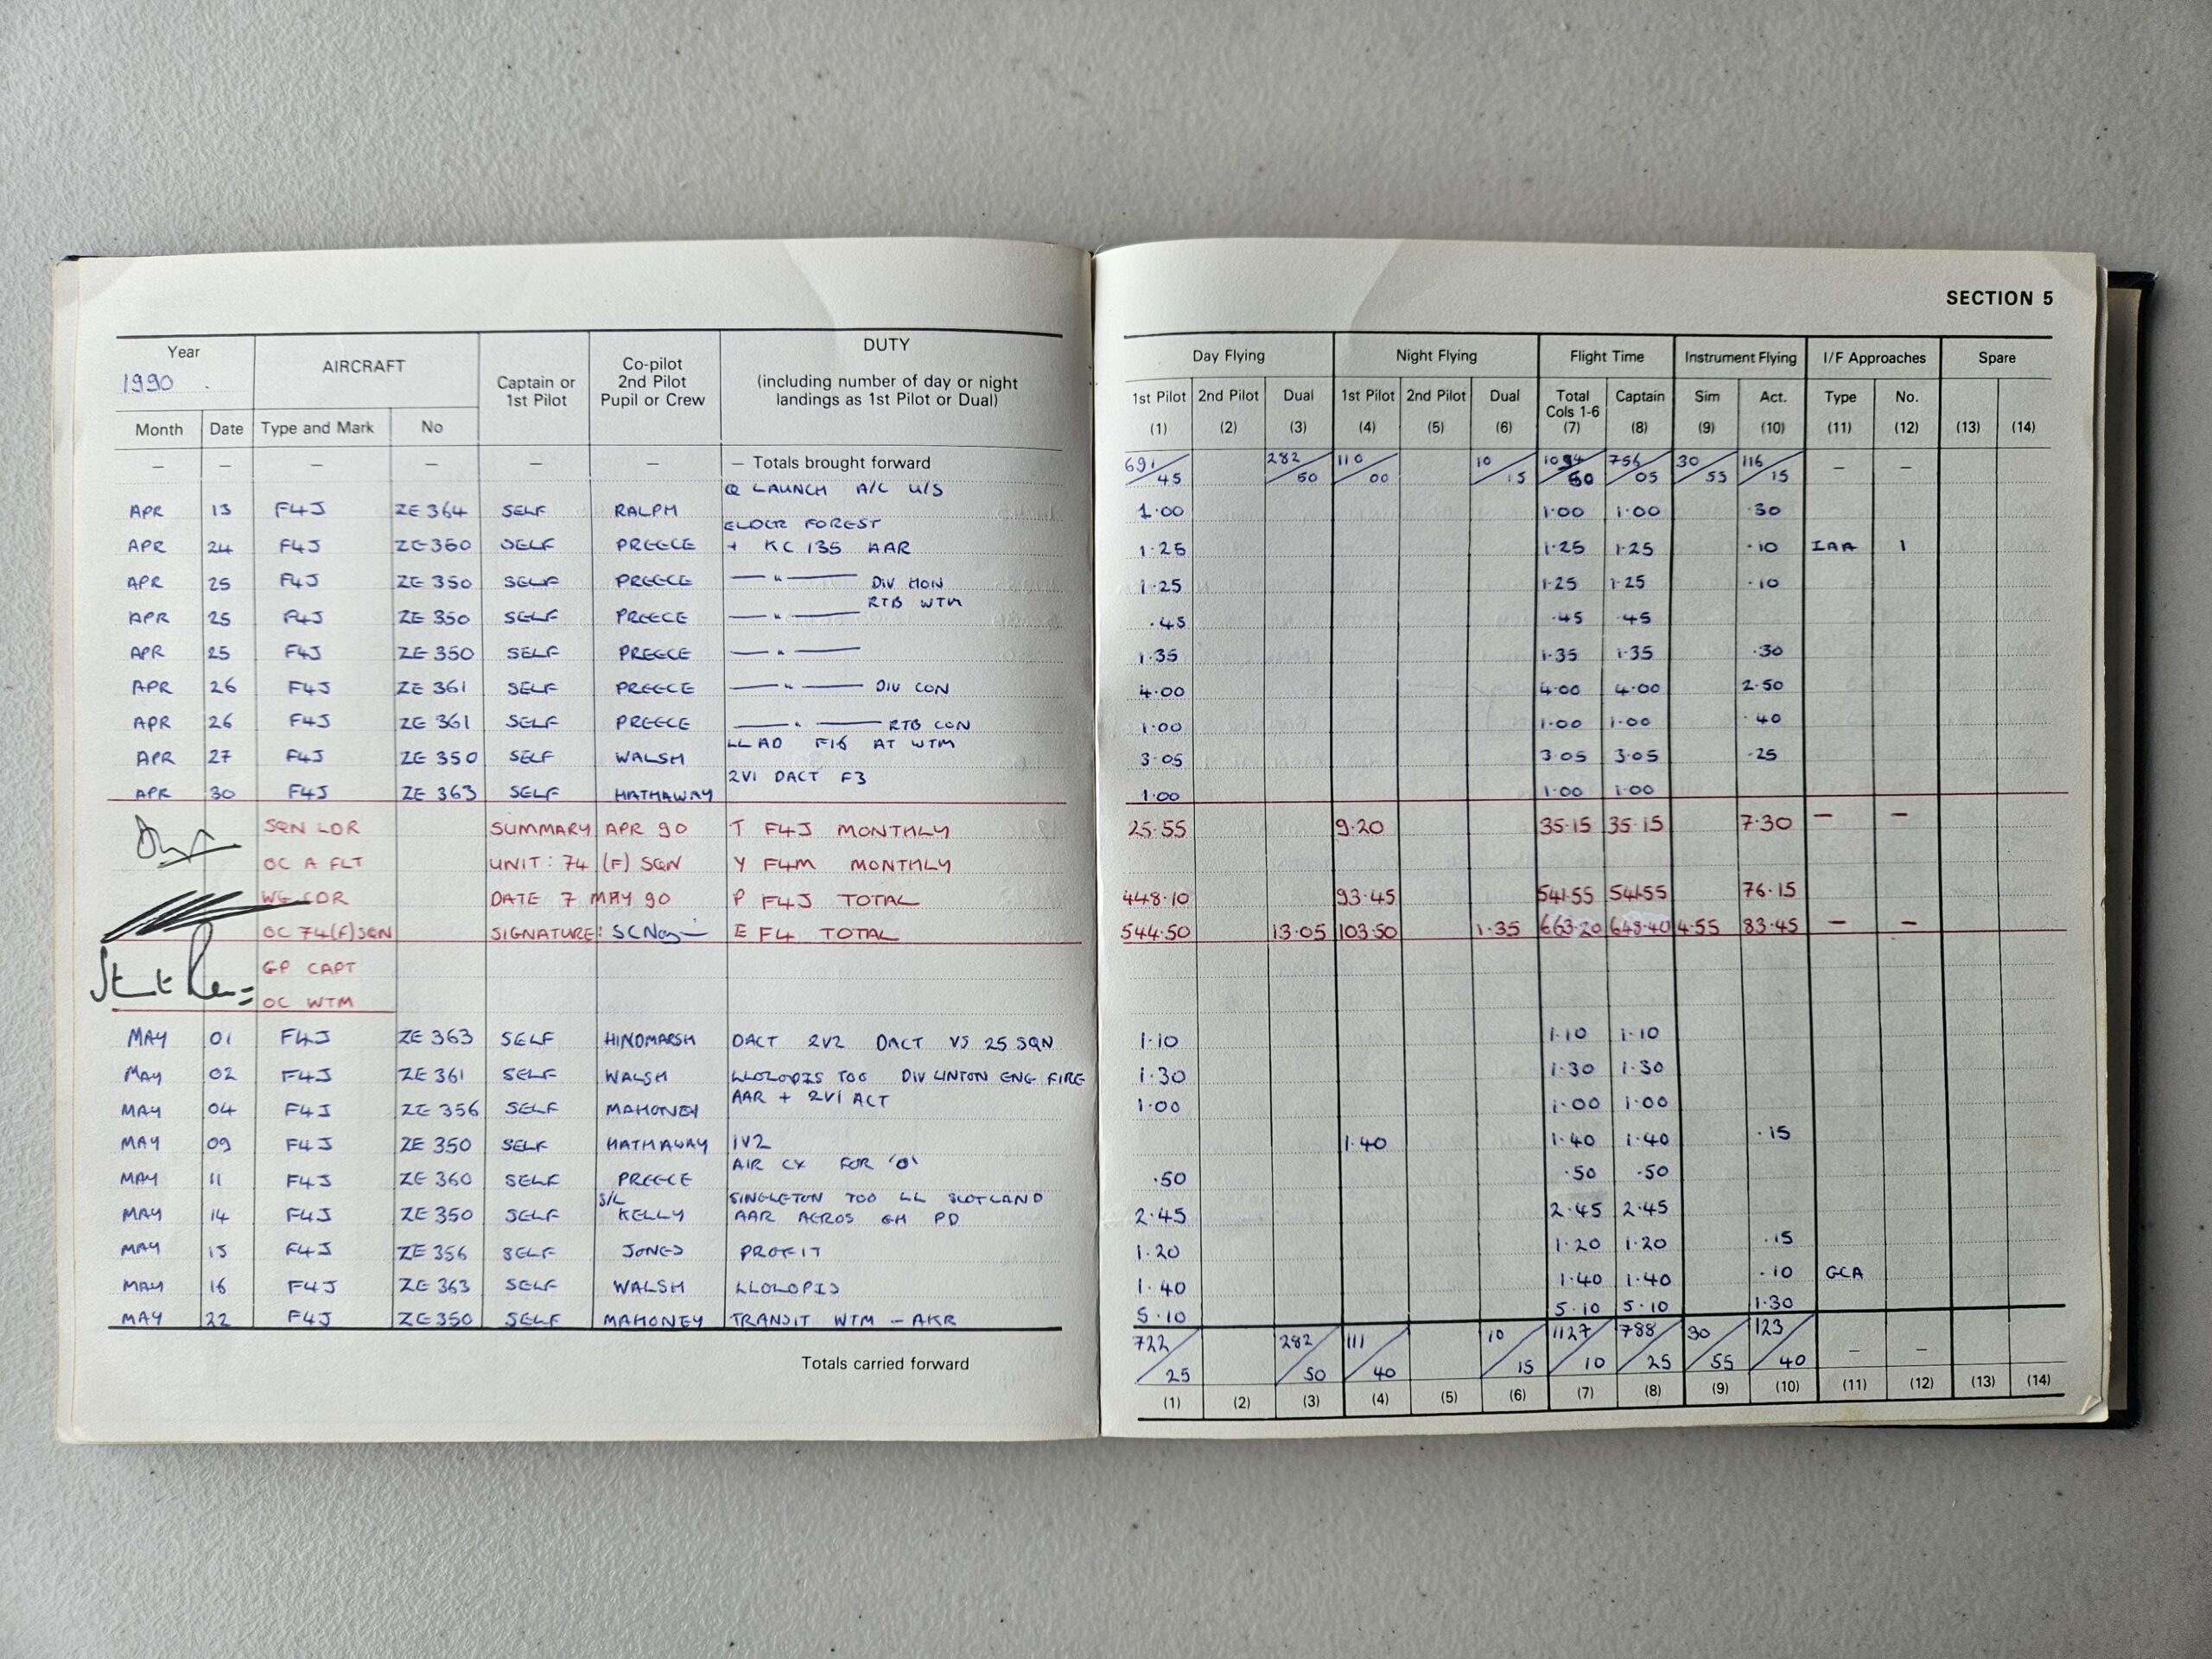 SECTION 5
Year AIRCRAFT Captain or 1st Pilot Co-pilot 2nd Pilot Pupil or Crew DUTY (including number of day or night landings as 1st Pilot or Dual) Day Flying Night Flying Flight Time Instrument Flying I/F Approaches Spare
1990 .
Month Date Type and Mark No 1st Pilot 2nd Pilot Dual 1st Pilot 2nd Pilot Dual Total Cols 1-6 Captain Sim Act. Type No.
(1) (2) (3) (4) (5) (6) (7) (8) (9) (10) (11) (12) (13) (14)
— — — — — — — Totals brought forward 691/45 282/50 110/00 10/15 1094/50 756/05 30/55 116/15 — —
Q LAUNCH A/C U/S
APR 13 F4J ZE 364 SELF RALPH 1·00 1·00 1·00 ·30
ELDER FOREST
APR 24 F4J ZE 360 SELF PREECE + KC 135 AAR 1·25 1·25 1·25 ·10 IAA 1
APR 25 F4J ZE 350 SELF PREECE — " — DIV HON 1·25 1·25 1·25 ·10
RTB WTM
APR 25 F4J ZE 350 SELF PREECE — " — ·45 ·45 ·45
APR 25 F4J ZE 350 SELF PREECE — " — 1·35 1·35 1·35 ·30
APR 26 F4J ZE 361 SELF PREECE — " — DIV CON 4·00 4·00 4·00 2·50
APR 26 F4J ZE 361 SELF PREECE — " — RTB CON 1·00 1·00 1·00 ·40
LLAD F16 AT WTM
APR 27 F4J ZE 350 SELF WALSH 3·05 3·05 3·05 ·25
2V1 DACT F3
APR 30 F4J ZE 363 SELF HATHAWAY 1·00 1·00 1·00
SQN LDR SUMMARY APR 90 T F4J MONTHLY 25·55 9·20 35·15 35·15 7·30 — —
OC A FLT UNIT: 74 (F) SQN Y F4M MONTHLY
WG CDR DATE 7 MAY 90 P F4J TOTAL 448·10 93·45 541·55 541·55 76·15
OC 74(F)SQN SIGNATURE: E F4 TOTAL 544·50 13·05 103·50 1·35 663·20 648·40 4·55 83·45 — —
GP CAPT
OC WTM
MAY 01 F4J ZE 363 SELF HINDMARSH DACT 2V2 DACT VS 25 SQN 1·10 1·10 1·10
MAY 02 F4J ZE 361 SELF WALSH LLOLOPIS TOO DIV LINTON ENG FIRE 1·30 1·30 1·30
AAR + 2V1 ACT
MAY 04 F4J ZE 356 SELF MAHONEY 1·00 1·00 1·00
MAY 09 F4J ZE 350 SELF HATHAWAY 1V2 1·40 1·40 1·40 ·15
AIR CX FOR 'O'
MAY 11 F4J ZE 360 SELF PREECE ·50 ·50 ·50
S/L SINGLETON TOO LL SCOTLAND
MAY 14 F4J ZE 350 SELF KELLY AAR AEROS GH PD 2·45 2·45 2·45
MAY 15 F4J ZE 356 SELF JONES PROFIT 1·20 1·20 1·20 ·15
MAY 16 F4J ZE 363 SELF WALSH LLOLOPIS 1·40 1·40 1·40 ·10 GCA
MAY 22 F4J ZE 350 SELF MAHONEY TRANSIT WTM – AKR 5·10 5·10 5·10 1·30
Totals carried forward 722/25 282/50 111/40 10/15 1127/10 788/25 30/55 123/40 — —
(1) (2) (3) (4) (5) (6) (7) (8) (9) (10) (11) (12) (13) (14)